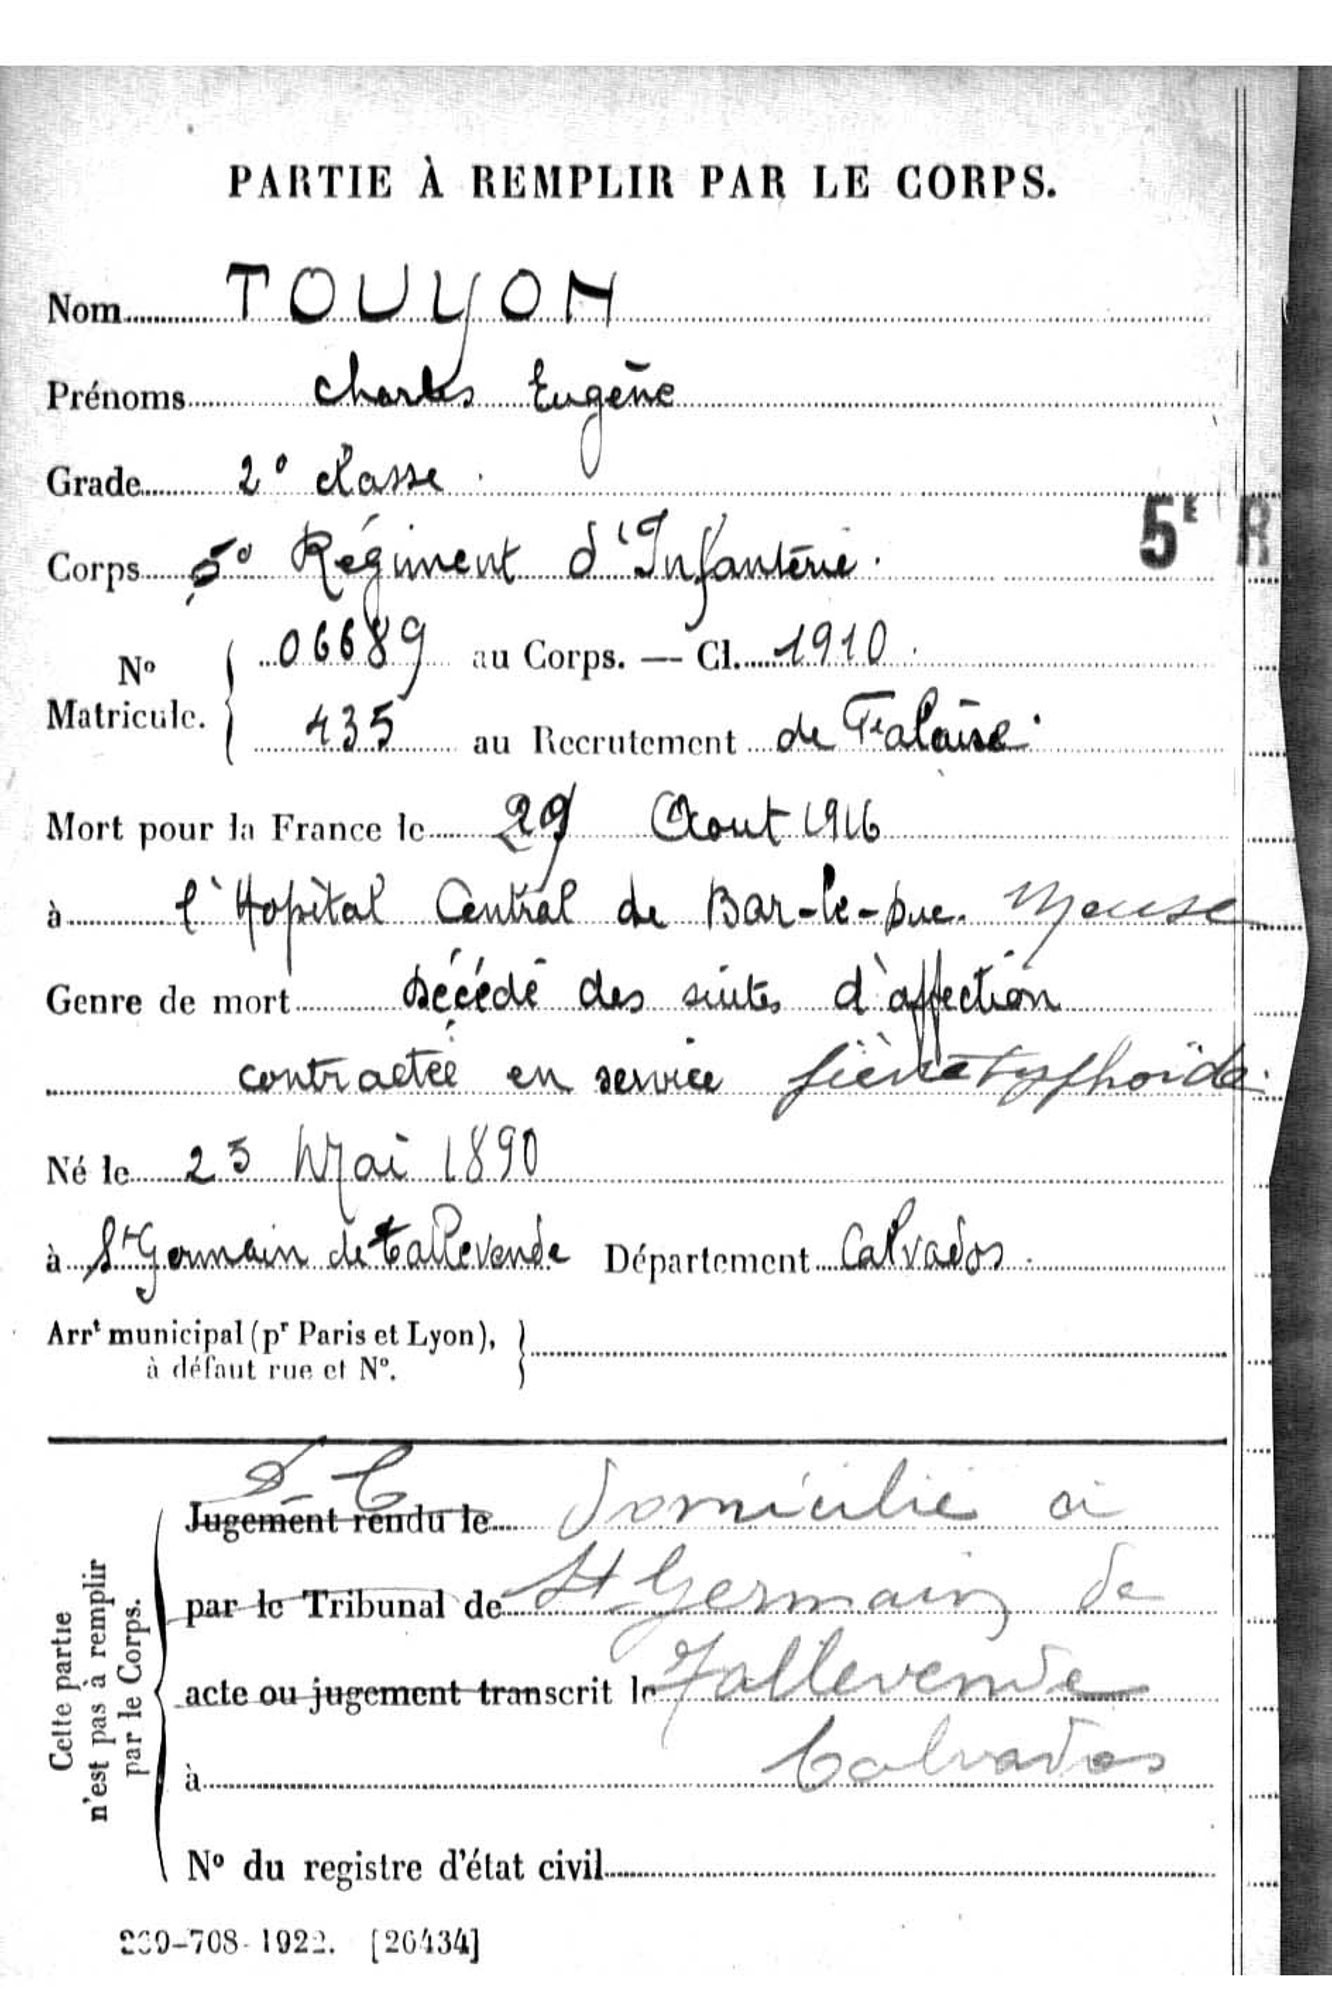 PARTIE À REMPLIR PAR LE CORPS.
Nom TOUYON
Prénoms Charles Eugène
Grade 2° classe.
Corps 5° Régiment d'Infanterie. 5E R
06689 au Corps. — Cl. 1910.
No Matricule.
435 au Recrutement de Falaise.
Mort pour la France le 29 Aout 1916
à l'Hopital Central de Bar-le-Duc. Meuse
Genre de mort Décédé des suites d'affection
contractée en service fièvre typhoïde.
Né le 23 Mai 1890
à St Germain de tallevende Département Calvados.
Arrt municipal (pr Paris et Lyon),
à défaut rue et No.
Cette partie
n'est pas à remplir
par le Corps.
Jugement rendu le domicilié à
par le Tribunal de St Germain de
acte ou jugement transcrit le Tallevende
à Calvados
No du registre d'état civil
-708-1922. [26434]